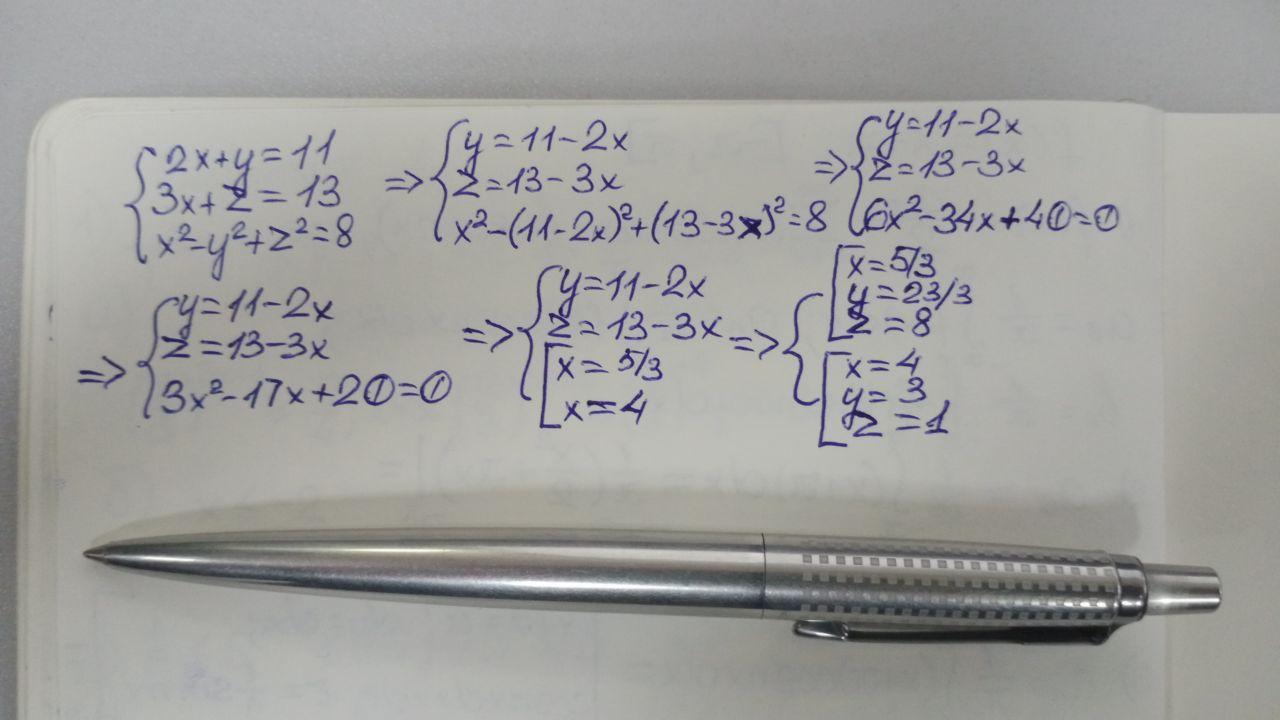 2x+y=11
3x+z=13
x²-y²+z²=8
=> y=11-2x
z=13-3x
x²-(11-2x)²+(13-3x)²=8
=> y=11-2x
z=13-3x
6x²-34x+40=0
=> y=11-2x
z=13-3x
3x²-17x+20=0
=> y=11-2x
z=13-3x
x=5/3
x=4
=> x=5/3
y=23/3
z=8
x=4
y=3
z=1